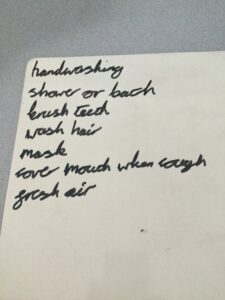 handwashing
shower or bath
brush teeth
wash hair
mask
cover mouth when cough
fresh air